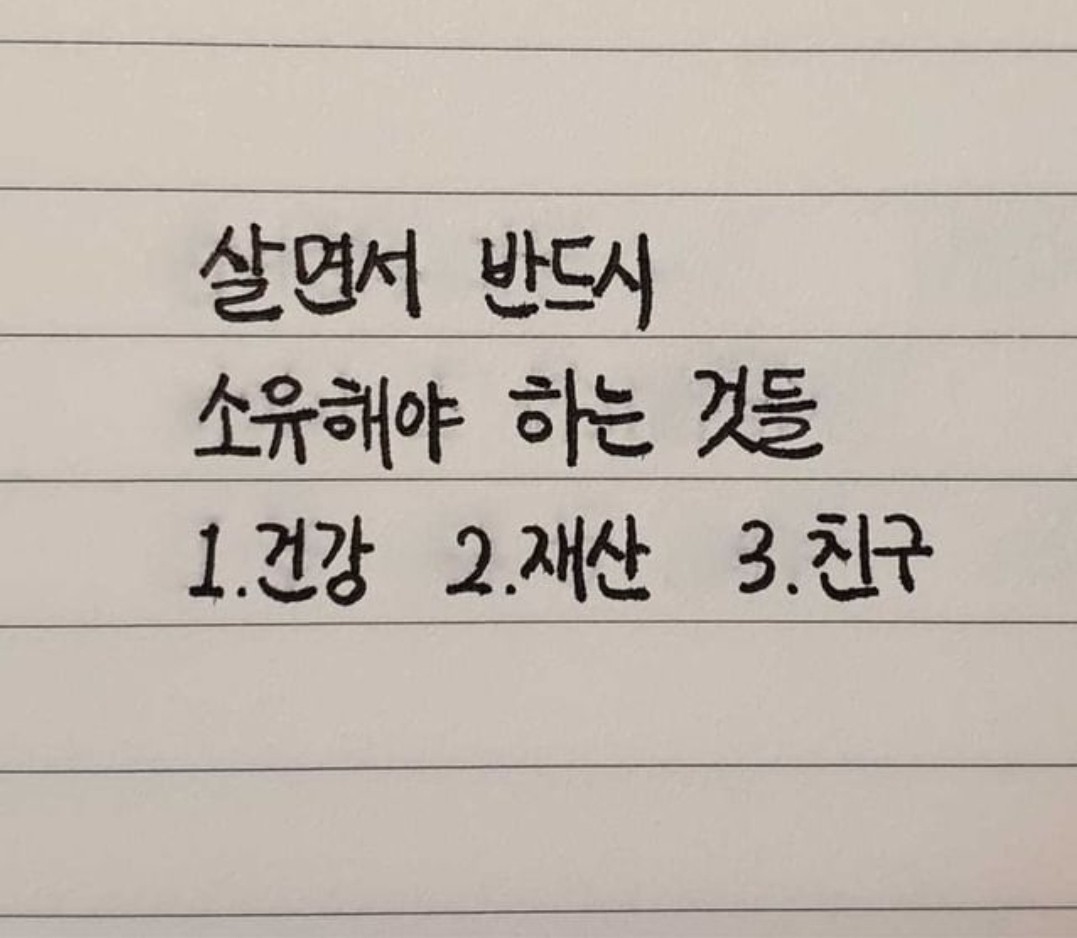 살면서 반드시
소유해야 하는 것들
1.건강 2.재산 3.친구